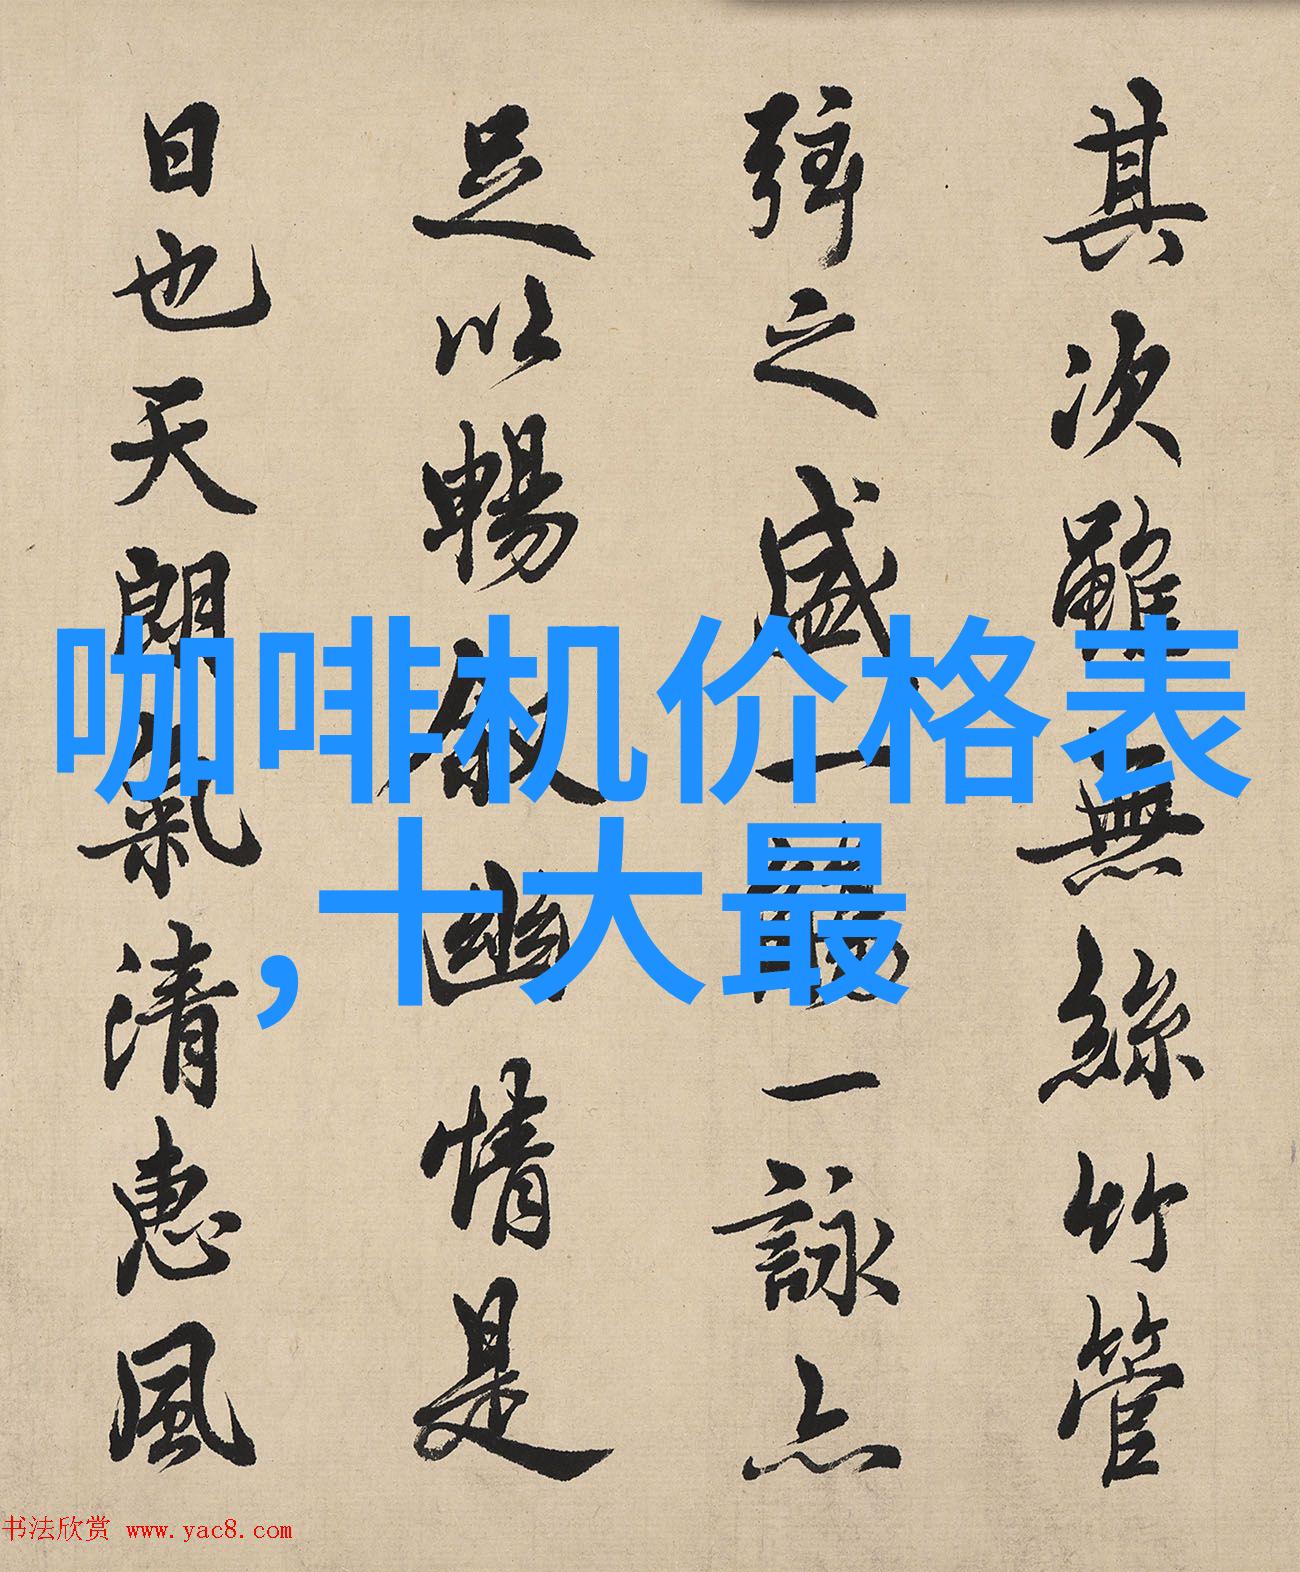 其次雖無絲竹管
弦之盛一觴一詠亦
足以暢敘幽情是
日也天朗氣清惠風
咖啡机价格表
，十大最
书法欣赏 www.yac8.com